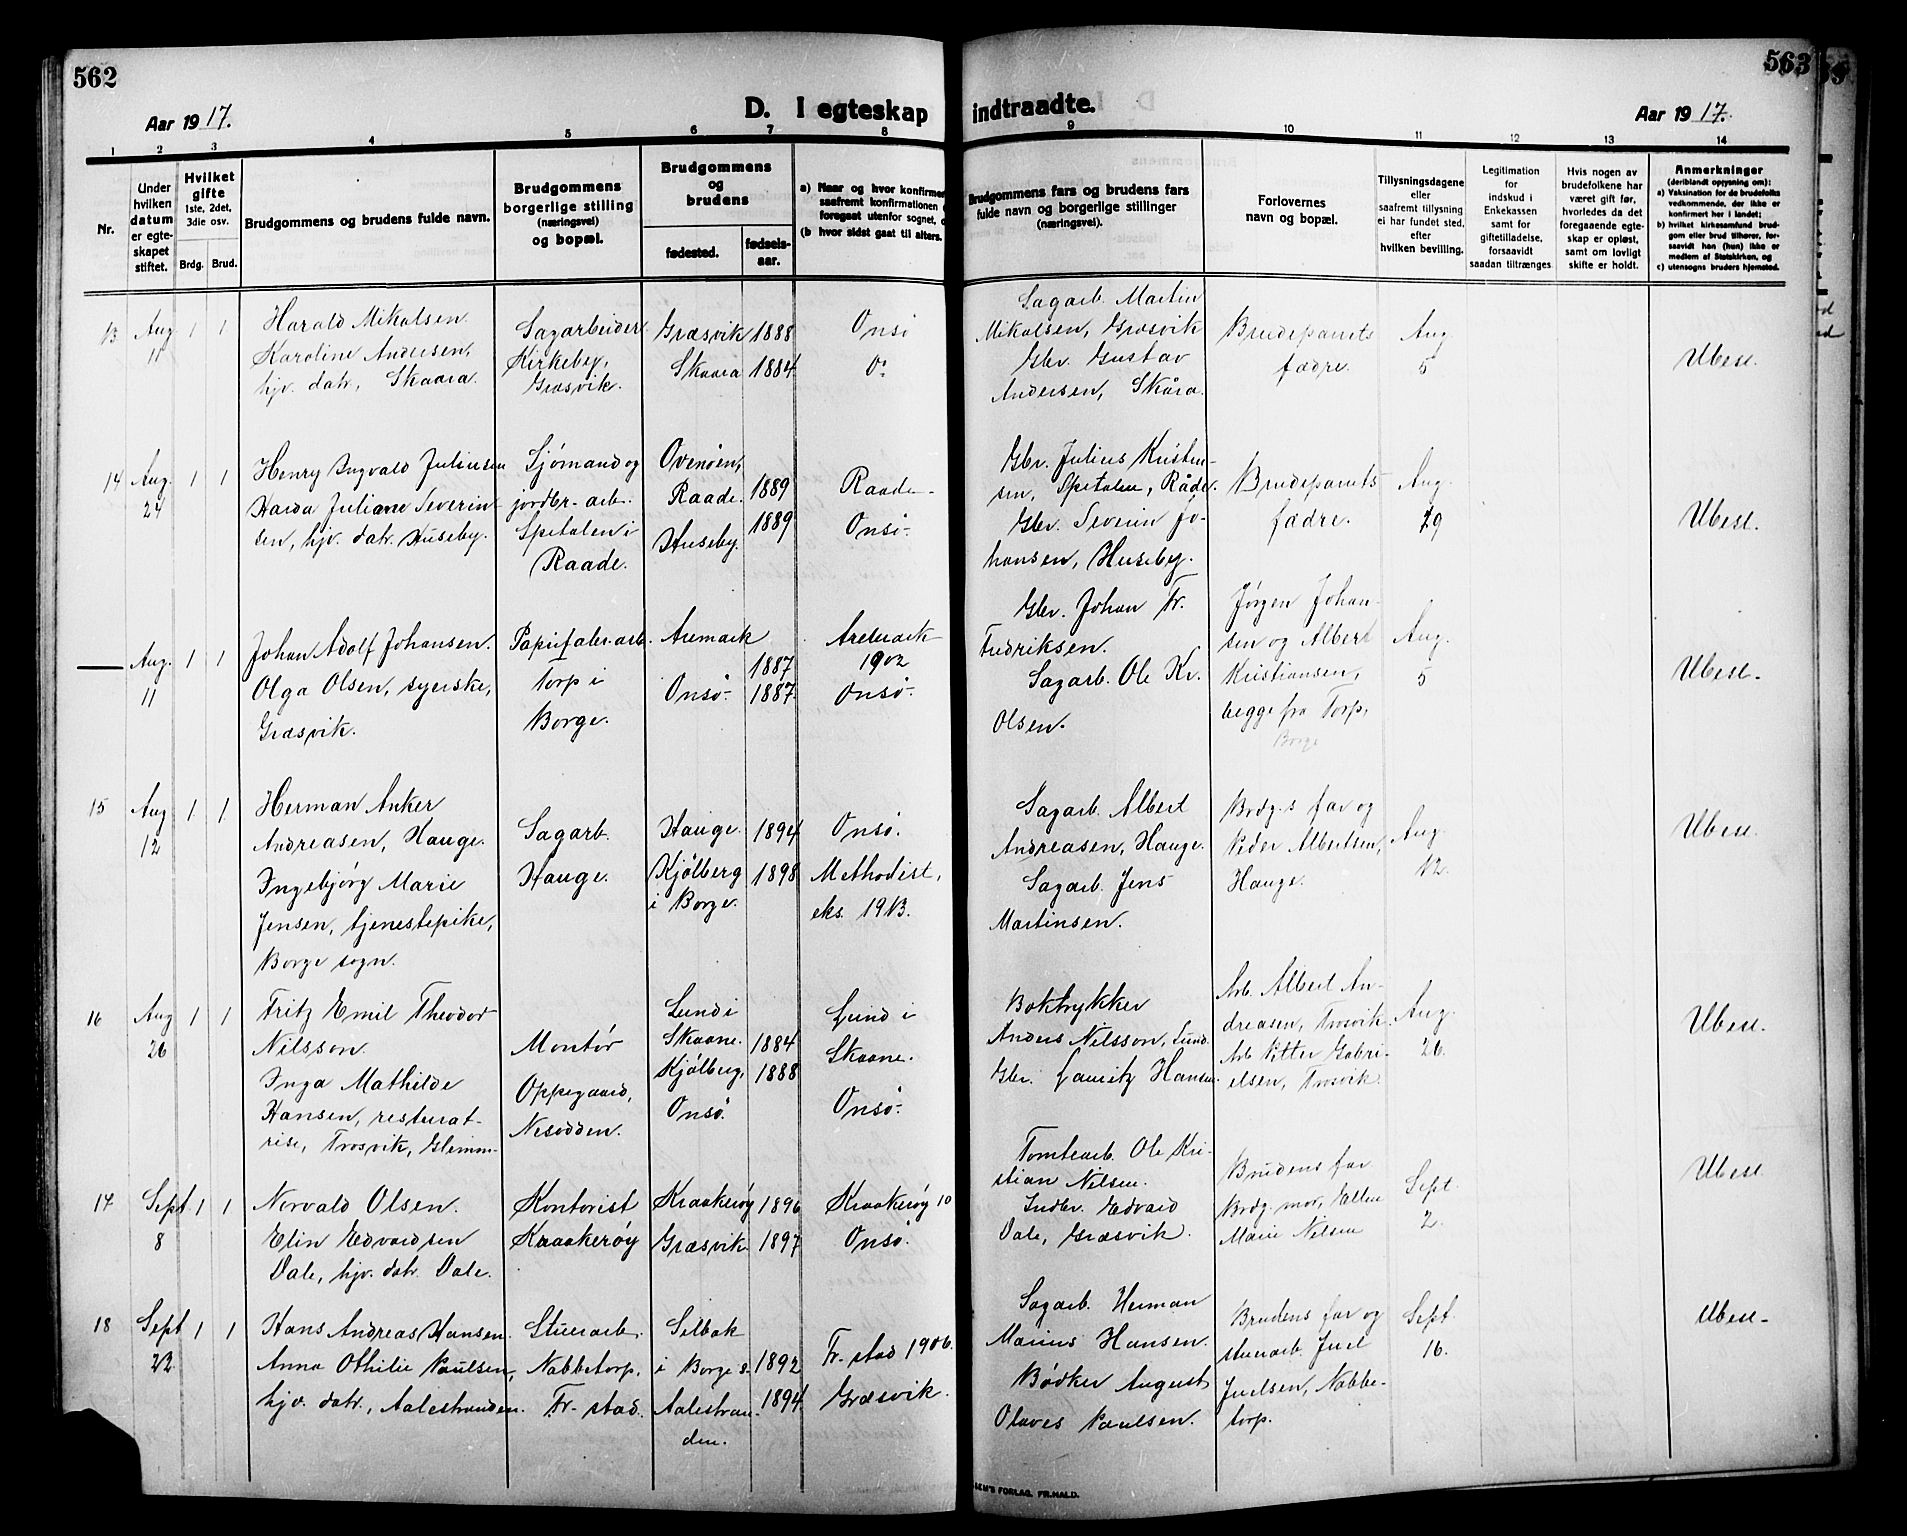 562
Aar 1917.
D. I egteskap
1
2
3
4
5
6
7
8
Nr.
Under
hvilken
datum
er egte-
skapet
stiftet.
Hvilket
gifte
1ste, 2det,
3die osv.
Brdg.
Brud.
Brudgommens og brudens fulde navn.
Brudgommens
borgerlige stilling
(næringsvei)
og bopæl.
Brudgommens
og
brudens
fødested.
fødsels-
aar.
a) Naar og hvor konfirmer
saafremt konfirmationen e
foregaat utenfor sognet, o
(b hvor sidst gaat til alters.
13
Aug
11
1
1
Harald Mikalsen.
Karoline Andersen,
hjv. datr, Skaara.
Sagarbeider
Kirkeby,
Græsvik.
Græsvik 1888
Skaara 1884
Onsø
Do
14
Aug.
24
1
1
Henry Ingvald Juliussen
Juliane Severin-
sen, hjv. datr. Huseby.
Sjømand og
jordbr. arb.
Spetalen i
Raade.
Raade. 1889
Huseby. 1889
Raade.
Onsø.
—
Aug.
11
1
1
Johan Adolf Johansen.
Olga Olsen, syerske,
Græsvik.
Papirfabr. arb.
Torp i
Borge.
Aremark
1887
Onsø. 1887.
Aremark
1902
Onsø.
15
Aug
12
1
1
Herman Anker
Andreasen, Hauge.
Ingebjørg Marie
Jensen, tjenestepike,
Borge sogn.
Sagarb.
Hauge.
Hauge. 1894
Kjølberg 1898
i Borge.
Onsø.
Methodist,
eks. 1913.
16
Aug
26
1
1
Fritz Emil Theodor
Nilsson.
Inga Mathilde
Hansen, resturat-
rise, Trosvik, Glemm.
Montør
Oppegaard,
Nesodden.
Lund i
Skaane. 1884
Kjølberg, 1888
Onsø.
Lund i
Skaane.
Onsø.
17
Sept
8
1
1
Norvald Olsen.
Elin Edvardsen
Dale, hjv. datr. Dale.
Kontorist
Kraakerøy
Kraakerøy 1896
Græsvik 1897
Kraakerøy 10
Onsø.
18
Sept
22
1
1
Hans Andreas Hansen.
Anna Othilie Paulsen,
hjv. datr., Aalestranden.
Stuerarb.
Nabbetorp,
Fr. stad.
Selbak
i Borge s. 1892
Aalestran- 1894
den.
Fr. stad 1906.
Græsvik.
563
indtraadte.
Aar 1917.
9
10
11
12
13
14
Brudgommens fars og brudens fars
fulde navn og borgerlige stillinger
(næringsvei).
Forlovernes
navn og bopæl.
Tillysningsdagene
eller
saafremt tillysning
ei har fundet sted,
efter
hvilken bevilling.
Legitimation
for
indskud i
Enkekassen
samt for
giftetilladelse,
forsaavidt
saadan tiltrænges
Hvis nogen av
brudefolkene har
været gift før,
hvorledes da det
foregaaende egte-
skap er opløst,
samt om lovligt
skifte er holdt.
Anmerkninger
(deriblandt oplysning om):
a) Vaksination for de brudefolks
vedkommende, der ikke er
konfirmert her i landet;
b) hvilket kirkesamfund brud-
gom eller brud tilhører, for-
saavidt han (hun) ikke er
medlem af Statskirken, og
c) utensogns bruders hjemsted.
Sagarb. Martin
Mikalsen, Græsvik
Gbr. Gustav
Andersen, Skåra.
Brudeparrets
fædre.
Aug
5
Ubesl.
Gbr. Julius Kristen-
sen, Spetalen, Råde.
Gbr. Severin Jo-
hansen, Huseby.
Brudeparrets
fædre.
Aug.
29
Ubesl.
Gbr. Johan Fr.
Fredriksen.
Sagarb. Ole Kr.
Olsen.
Jørgen Johan-
sen og Albert
Kristiansen,
begge fra Torp,
Borge
Aug.
5
Ubesl.
Sagarb. Albert
Andreasen, Hauge.
Sagarb. Jens
Martinsen.
Brdg.s far og
Peder Albertsen,
Hauge.
Aug.
12.
Ubesl.
Boktrykker
Anders Nilsson, Lund.
Gbr. Lauritz Hansen.
Arb. Albert An-
dreasen, Trosvik.
Arb. Petter Gabri-
elsen, Trosvik.
Aug.
26.
Ubesl.
Tomtearb. Ole Kri-
stian Nilsen.
Edvard
Dale, Græsvik.
Brudens far
Brdg. mor, Ellen
Marie Nilsen
Sept.
2.
Ubesl.
Sagarb. Herman
Marius Hansen.
Bødker August
Olaves Paulsen.
Brudens far og
stuerarb. Juel
Juelsen, Nabbe-
torp.
Sept.
16.
Ubesl.
SEM'S FORLAG. FR.HALD.